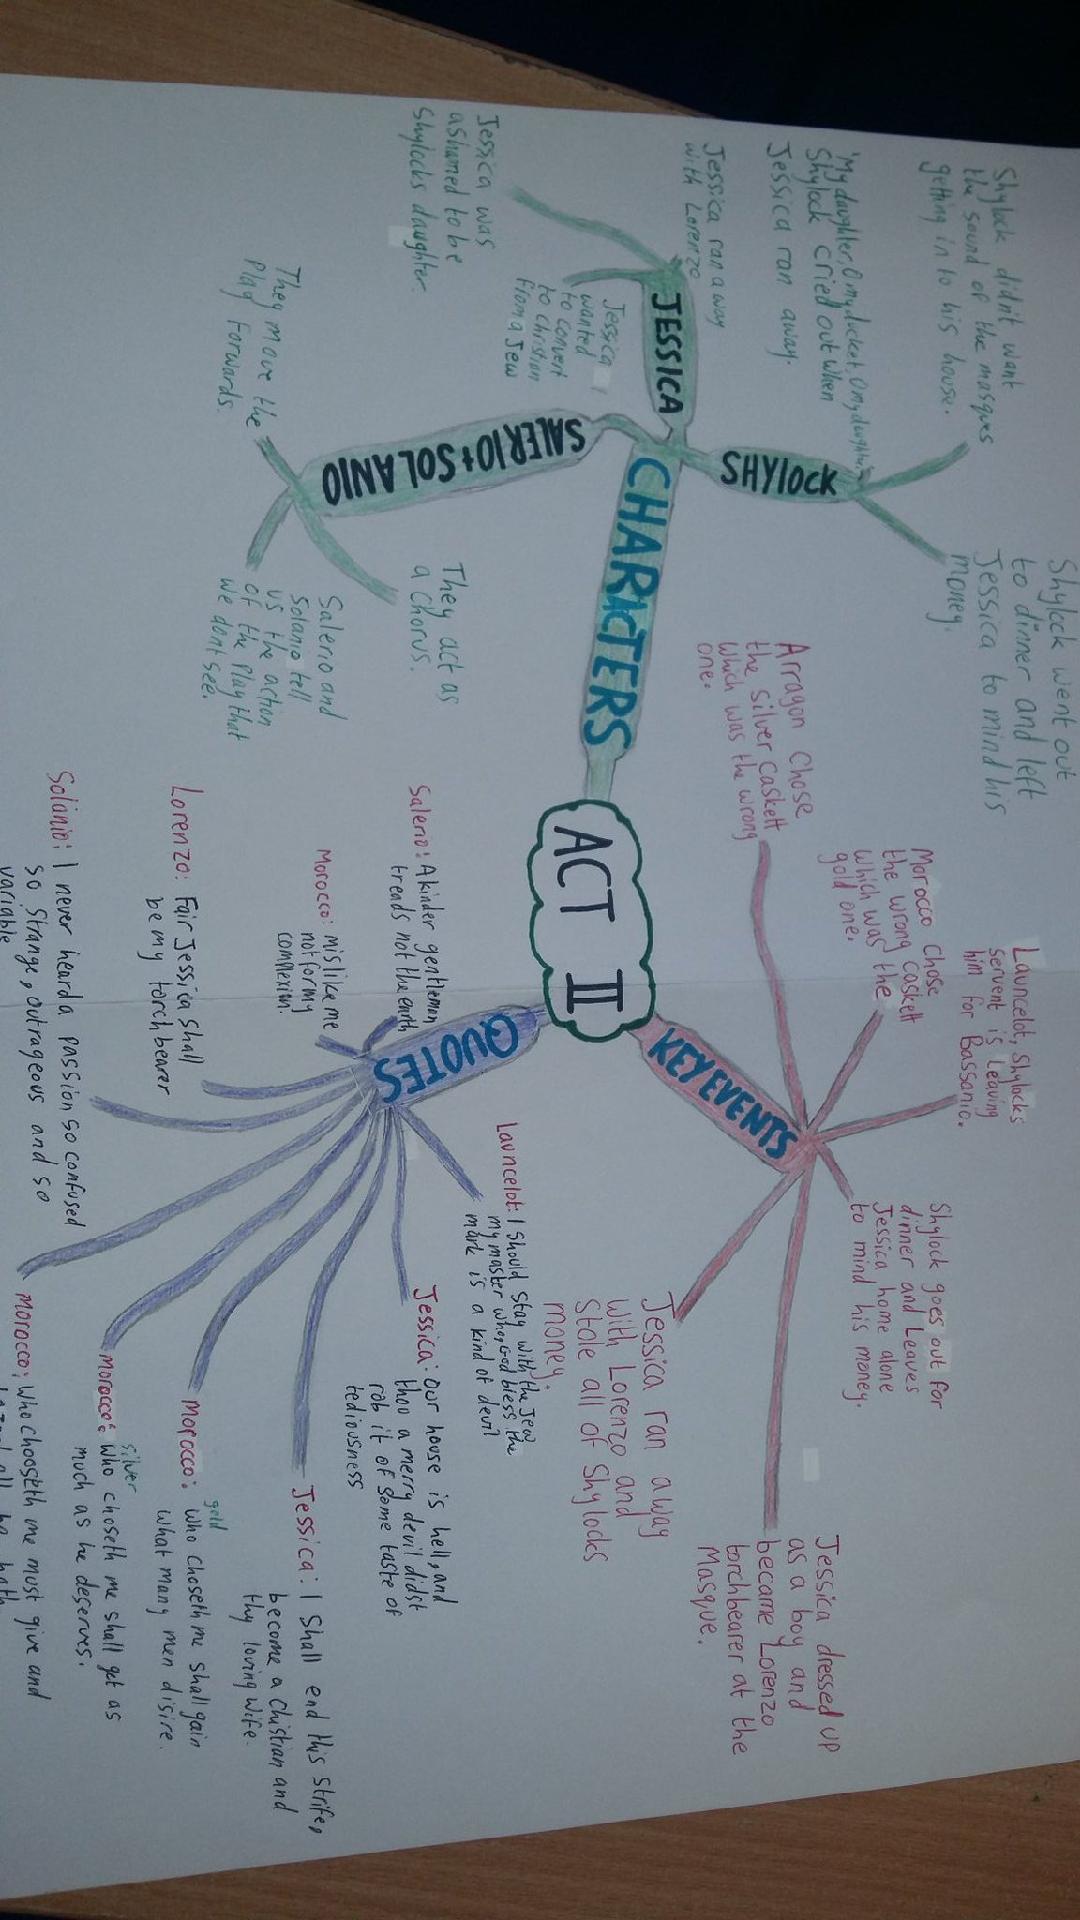 ACT II
CHARACTERS
SHYlock
Shylock didn't want
the sound of the masques
getting in to his house.
'My daughter, O my ducket, O my daughter'
Shylock cried out when
Jessica ran away.
Shylock went out
to dinner and left
Jessica to mind his
money.
JESSICA
Jessica ran away
with Lorenzo
Jessica was
ashamed to be
Shylocks daughter.
Jessica
wanted
to convert
to christian
from a Jew
SALERIO+SOLANIO
They move the
play forwards.
They act as
a chorus.
Salerio and
Solanio tell
us the action
of the play that
we dont see.
KEY EVENTS
Arragon chose
the silver caskett
which was the wrong
one.
Morocco chose
the wrong caskett
which was the
gold one.
Launcelot, Shylocks
servent is leaving
him for Bassanio.
Shylock goes out for
dinner and leaves
Jessica home alone
to mind his money.
Jessica ran away
with Lorenzo and
Stole all of Shylocks
money.
Jessica dressed up
as a boy and
became Lorenzo
torchbearer at the
Masque.
QUOTES
Salerio: A kinder gentleman
treads not the earth
Morocco: mislike me
not for my
complexion.
Lorenzo: Fair Jessica shall
be my torch bearer
Solanio: I never heard a passion so confused
so strange, outrageous and so
variable
Launcelot: I should stay with the Jew
my master who, God bless the
mark is a kind of devil
Jessica: our house is hell, and
thou a merry devil didst
rob it of some taste of
tediousness
Jessica: I shall end this strife,
become a christian and
thy loving wife.
gold
Morocco: who choseth me shall gain
what many men disire.
silver
Morocco: who choseth me shall get as
much as he deserves.
Morocco: Who chooseth me must give and
all he hath